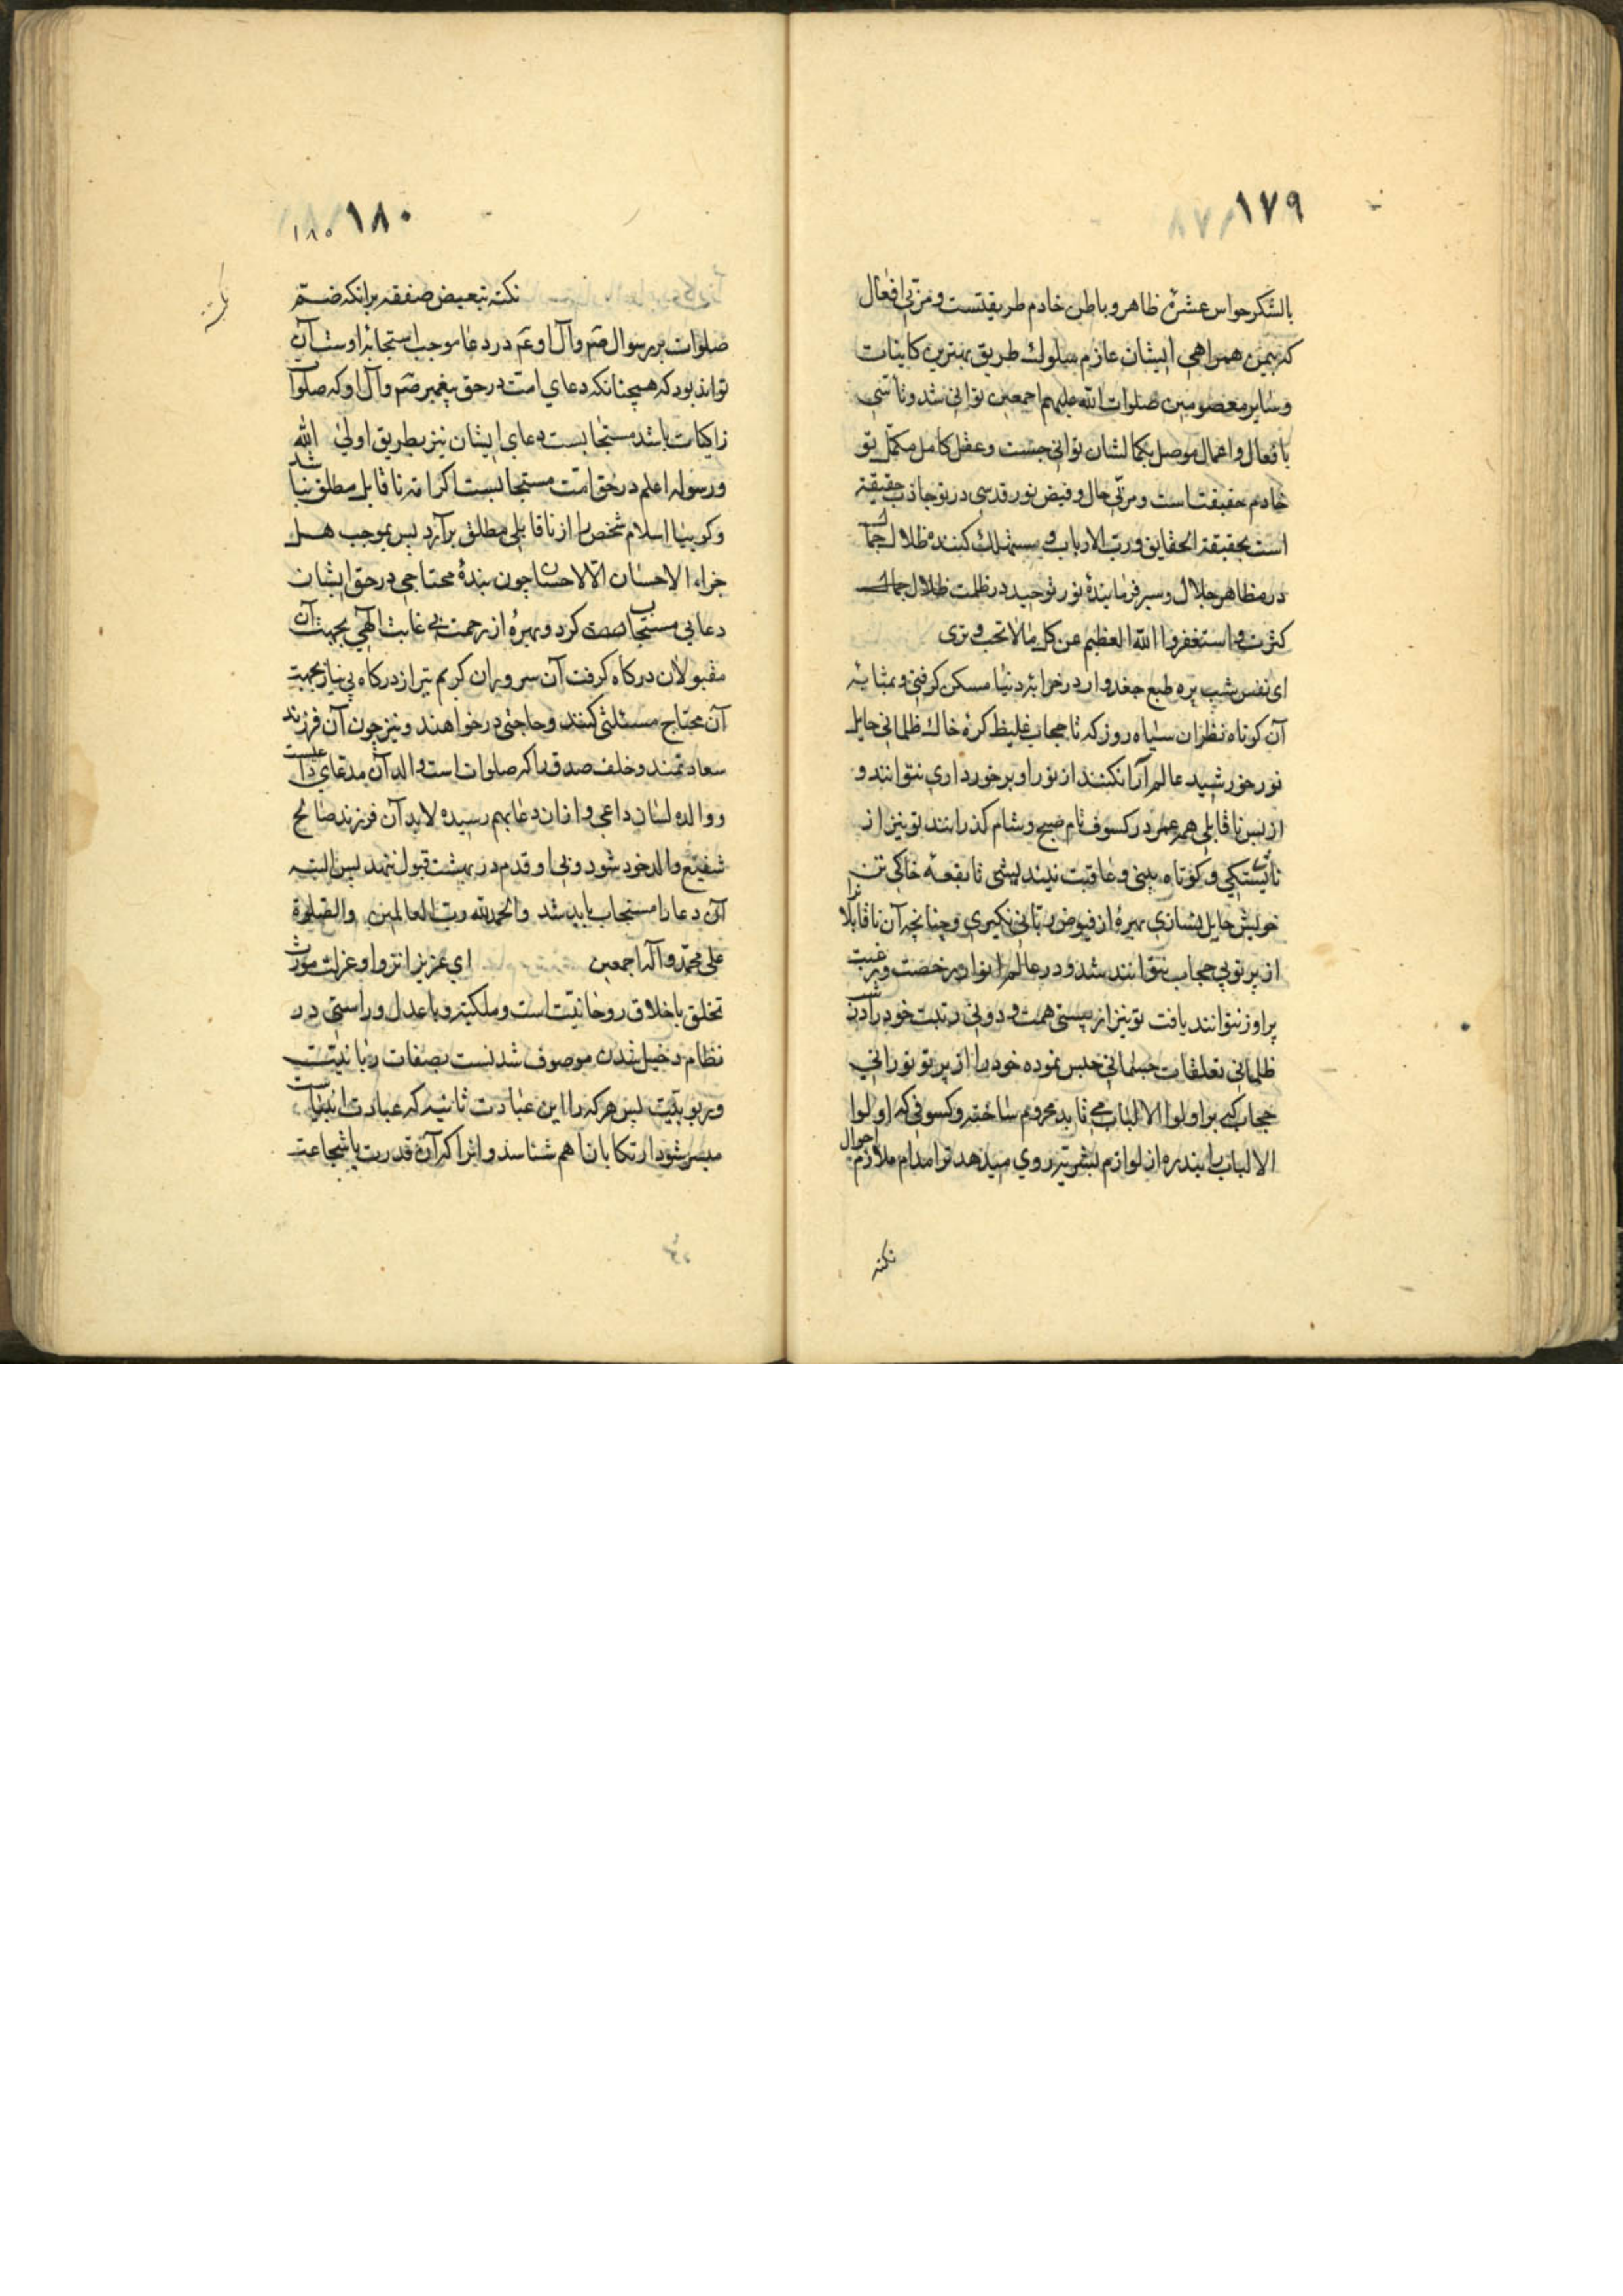 ١٧٩
بالشکر حواس عشرهٔ ظاهر و باطن خادم طریقتست و مربی افعال
که بیمن همراهی ایشان عازم سلوك طریق بهترین کاینات
و سایر معصومین صلوات الله علیهم اجمعین توانی شد و تأسی
بافعال و اعمال موصل بکمالشان توانی جست و عقل کامل مکمّل تو
خادم حقیقت است و مربّی حال و فیض نور قدسی در تو جاذب حقیقیه
است بحقیقة الحقایق و ربّ الارباب و مستهلك کنندهٔ ظلال جمالی
در مظاهر جلال و سیر فرمایندهٔ نور توحید در ظلمت ظلال جمالك
کثرت و استغفروا الله العظیم عن کل مالا تحب و تری
ای نفس شب پره طبع جغدوار در خرابهٔ دنیا مسکن گرفتی و بمثابهٔ
آن کوتاه نظران سیاه روز که تا حجاب غلیظ کرهٔ خاك ظلمانی حایل
نور خورشید عالم آرا نکنند از نور او برخورداری نتوانند و
از بس ناقابلی همه عمر در کسوف تام صبح و شام گذرانند تو نیز از
ناشستگی و کوتاه بینی و عاقبت نیندیشی تا بقعهٔ خاکی تن
خویش حایل نسازی بهرهٔ از فیوض ربّانی نگیری و چنانچه آن ناقابلان
از پرتو بی حجاب نتوانند شد و در عالم انوار بر خصت و رغبت
پرواز نتوانند یافت تو نیز از پستی همت و دونی رتبت خود را در شب
ظلمانی تعلقات جسمانی حبس نموده خود را از پرتو نورانی
حجاب که بر اولوا الالباب می تابد محروم ساخته و کسوفی که اولوا
الالباب را بندره از لوازم بشریّه روی میدهد ترا مدام ملازم احوال
نکته
١٨٠
١٨٥
نکته
نکته تبعیض صفقه برانکه ضمّ
صلوات بر رسوال صم و آل او عم در دعا موجب استجابهٔ اوست آن
تواند بود که همچنانکه دعای امت در حق پیغمبر صم و آل او که صلوات
زاکیات باشد مستجابست دعای ایشان نیز بطریق اولی الله
و رسوله اعلم در حق امت مستجابست اگر امة ناقابل مطلق نباشد
و گوییا اسلام شخص را از ناقابلی مطلق برآرد پس بموجب هل
جزاء الاحسان الّا الاحسان چون بندهٔ محتاجی در حق ایشان
دعایی مستجاب کرد و بهرهٔ از رحمت بی غایت الٓهی بجهت آن
مقبولان درگاه گرفت آن سروران کریم نیز از درگاه بی نیاز بجهت
آن محتاج مسئلتی کنند و حاجتی درخواهند و نیز چون آن فرزند
سعادتمند و خلف صدق را که صلوات است والد آن مدعای داعیست
و والده لسان داعی و از ان دعا بهم رسیده لابد آن فرزند صالح
شفیع والد خود شود و بی او قدم در بهشت قبول ننهد پس البته
آن دعا را مستجاب باید شد والحمد لله ربّ العالمین والصّلوة
علی محمّد و آله اجمعین ای عزیز انزوا و عزلت مورث
تخلق باخلاق روحانیّت است و ملکیّه و با عدل و راستی در
نظام دخیل شدن موصوف شدنست بصفات ربانیّت
و ربوبیّت پس هر که را این عبادت ثانیه که عبادت انبیاست
میسر شود ارتکاب آنا هم شناسد و انرا که آن قدرت یا شجاعت